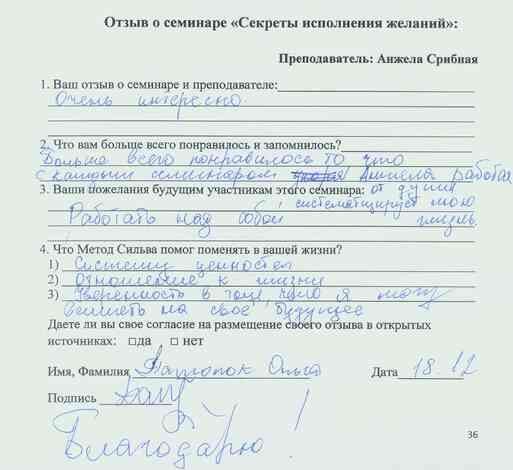 Отзыв о семинаре «Секреты исполнения желаний»:
Преподаватель: Анжела Срибная
1. Ваш отзыв о семинаре и преподавателе:
Очень интересно.
2. Что вам больше всего понравилось и запомнилось?
Больше всего понравилось то, что
с каждым семинаром Анжела работает
3. Ваши пожелания будущим участникам этого семинара: от души
и систематизирует мою
Работать над собой жизнь
4. Что Метод Сильва помог поменять в вашей жизни?
1) Систему ценностей
2) Отношение к жизни
3) Уверенность в том, что я могу
влиять на своё будущее
Даете ли вы свое согласие на размещение своего отзыва в открытых
источниках: □да □ нет
Имя, Фамилия Ольга Дата 18.12
Подпись
Благодарю!
36